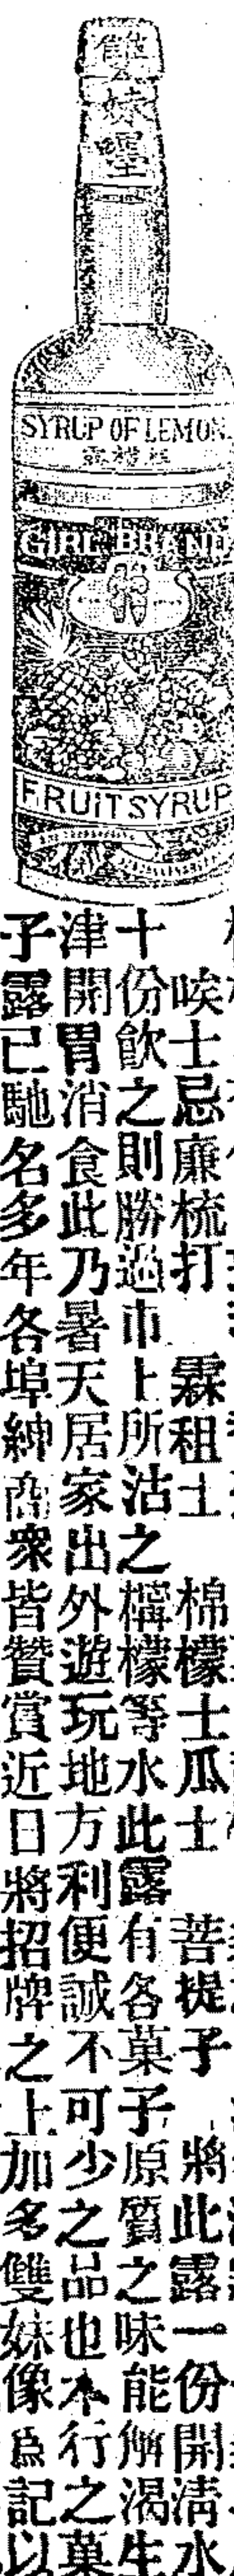 雙
妹
嚜
SYRUP OF LEMON
GIRL BRAND
FRUIT SYRUP
唉士忌廉梳打 霖租士 棉檬士瓜士 菩提子 將此露一份開清水
十份飲之則勝過市上所沽之檸檬等水此露有各菓子原質之味能解渴生
津開胃消食此乃暑天居家出外遊玩地方利便誠不可少之品也本行之菓
子露已馳名多年各埠紳商衆皆贊賞近日將招牌之上加多雙妹像爲記以